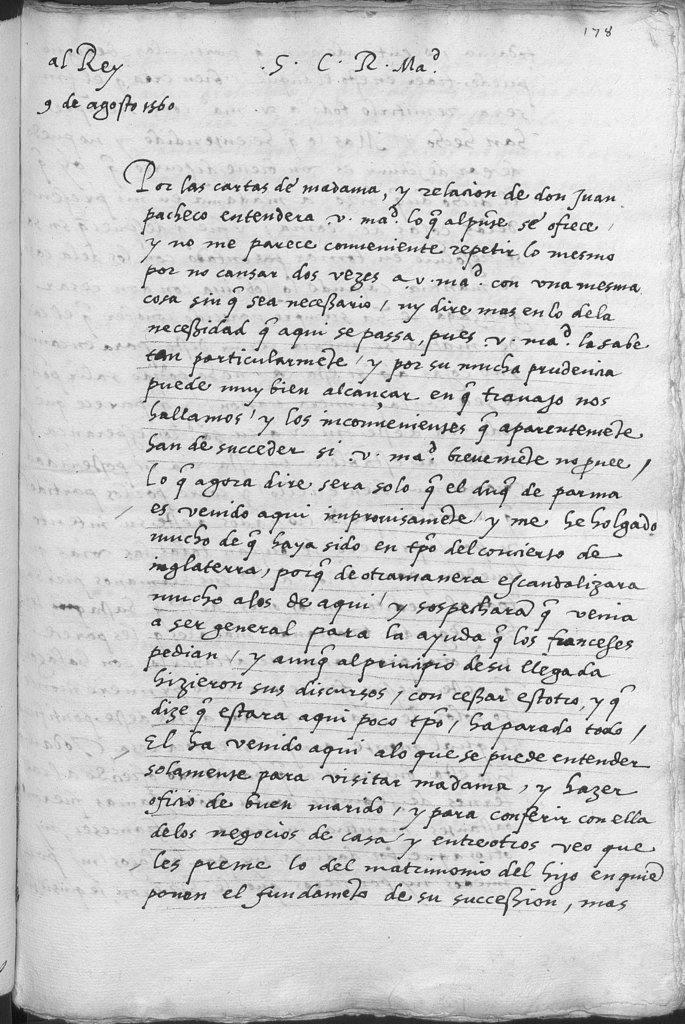 178
al Rey
.S. C. R. Mad.
9 de agosto 1560
Por las cartas de madama, y relacion de don Juan
pacheco entendera v. mad. lo q̃ al pn̄te se ofrece/
y no me parece conveniente repetir lo mesmo
por no cansar dos vezes a v. mad. con una mesma
cosa sin q̃ sea necessario/ ny dire mas en lo dela
necessidad q̃ aqui se passa, pues v. mad. la sabe
tan particularmẽte/ y por su mucha prudencia
puede muy bien alcançar en q̃ travajo nos
hallamos/ y los inconvenientes q̃ aparentemẽte
han de succeder si v. mad. brevemẽte no p̱vee/
lo q̃ agora dire sera solo q̃ el duq̃ de parma
es venido aqui improvisamẽte/ y me he holgado
mucho de q̃ haya sido en tp̄o del concierto de
inglaterra, porq̃ de otra manera escandalizara
mucho alos de aqui/ y sospecharã q̃ venia
a ser general para la ayuda q̃ los franceses
pedian/ y aunq̃ al principio de su llegada
hizieron sus discursos/ con cessar estotro, y q̃
dize q̃ estara aqui poco tp̄o/ ha parado todo/
El ha venido aqui alo que se puede entender
solamente para visitar madama/ y hazer
oficio de buen marido/ y para conferir con ella
delos negocios de casa/ y entre otros veo que
les preme lo del matrimonio del hijo en quiẽ
ponen el fundamẽto de su succession, mas